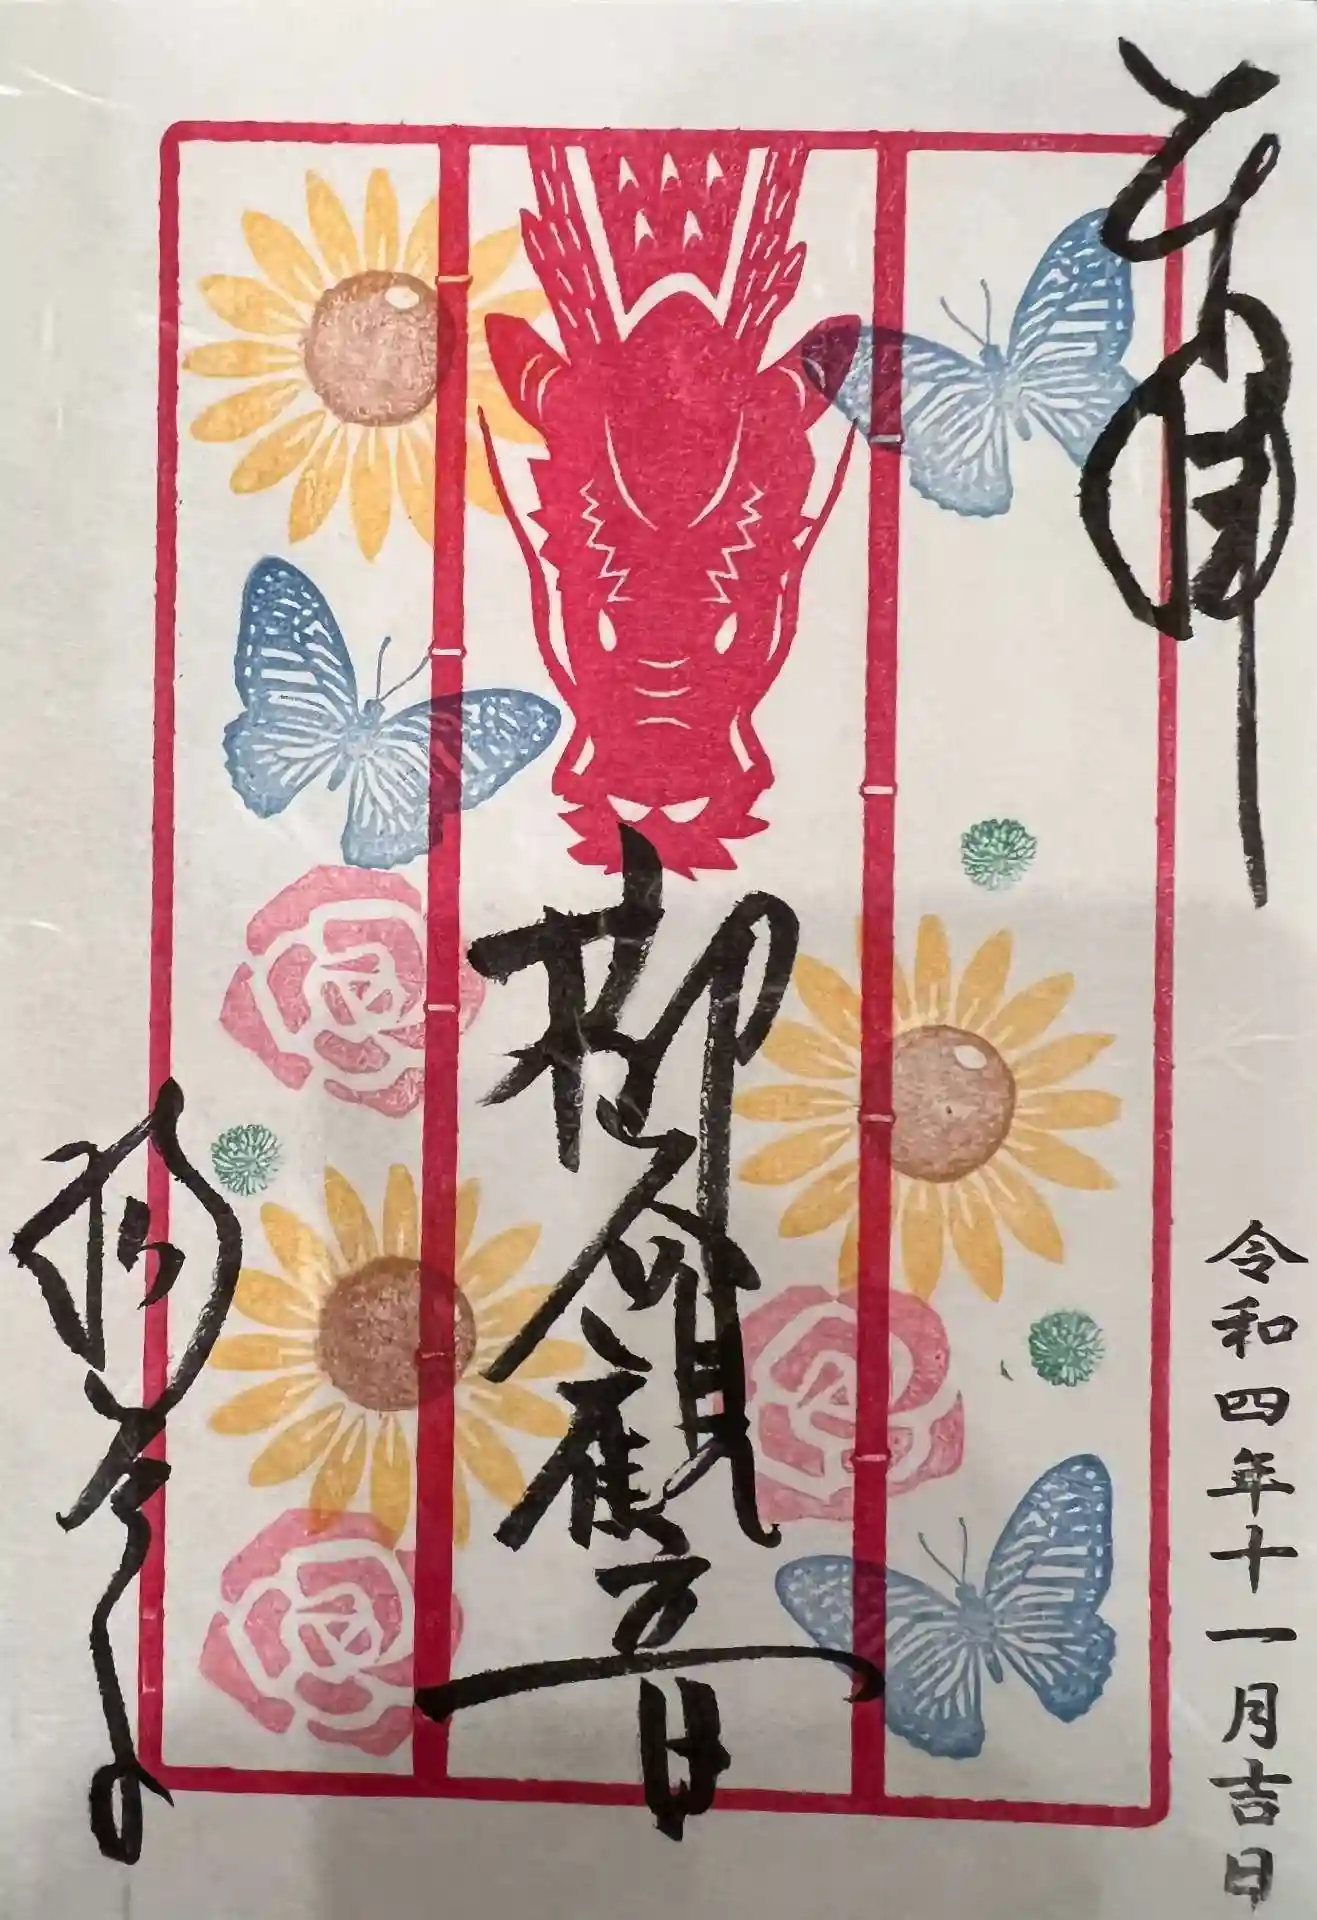 奉拝
令和四年十一月吉日
柳谷觀音
楊谷寺